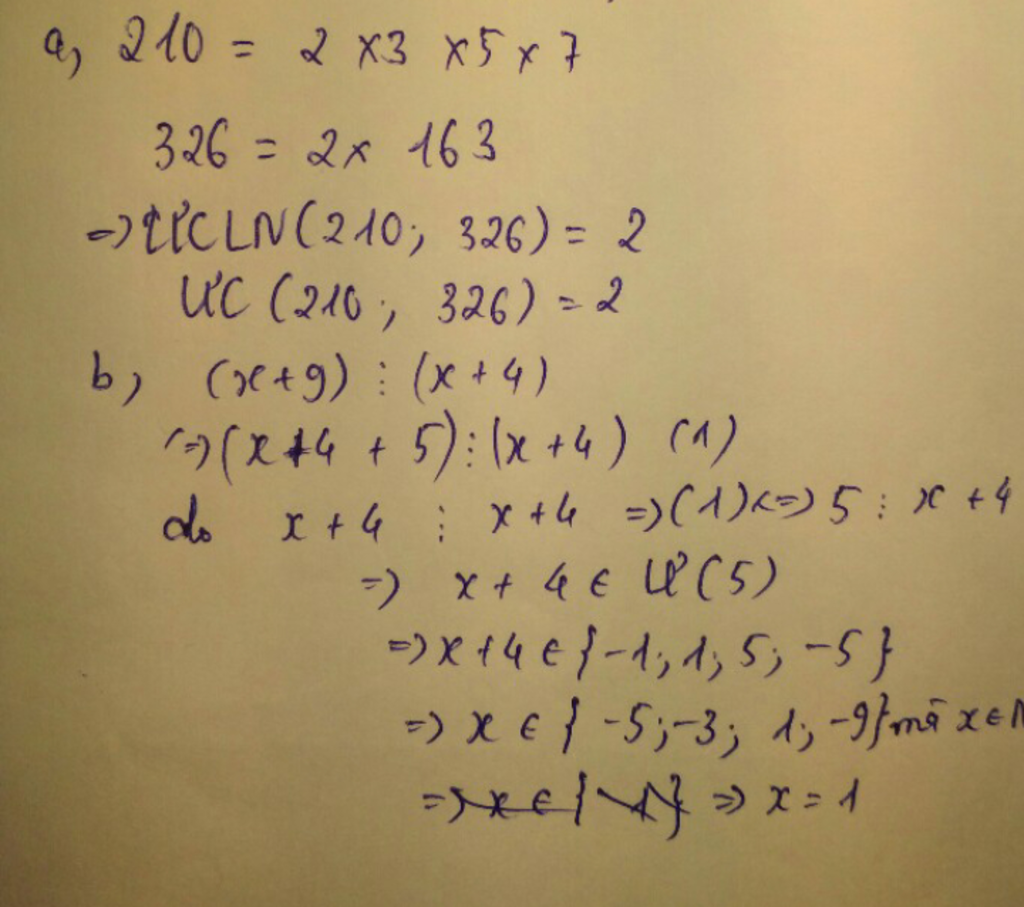 a, 210 = 2 x 3 x 5 x 7
326 = 2 x 163
=> ƯCLN(210; 326) = 2
ƯC (210; 326) = 2
b, (x+9) ⋮ (x + 4)
<=> (x+4 + 5) ⋮ (x + 4) (1)
do x + 4 ⋮ x + 4 => (1) <=> 5 ⋮ x + 4
=> x + 4 ∈ Ư(5)
=> x + 4 ∈ {-1; 1; 5; -5}
=> x ∈ { -5; -3; 1; -9} mà x ∈ N
=> x ∈ { 1} => x = 1